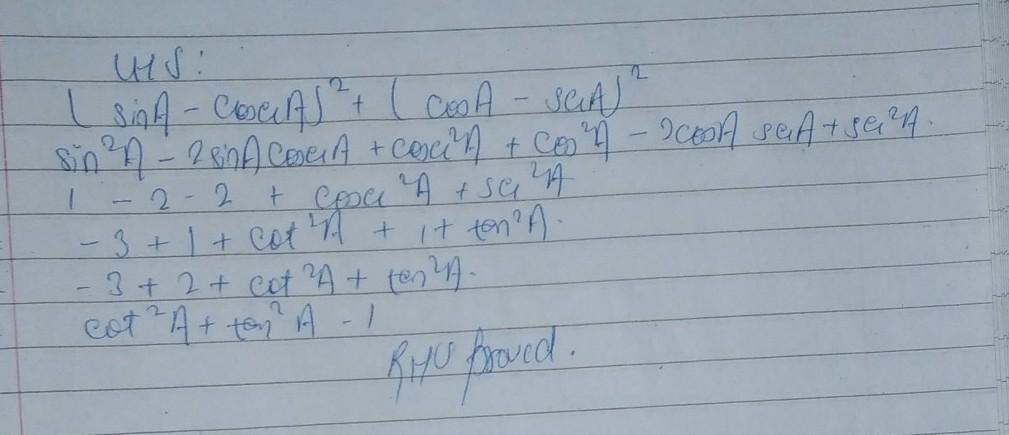 LHS:
( sinA - cosecA)² + ( cosA - secA)²
sin²A - 2sinA cosecA + cosec²A + cos²A - 2cosA secA + sec²A.
1 - 2 - 2 + cosec²A + sec²A
-3 + 1 + cot²A + 1 + tan²A.
-3 + 2 + cot²A + tan²A.
cot²A + tan²A - 1
RHS proved.